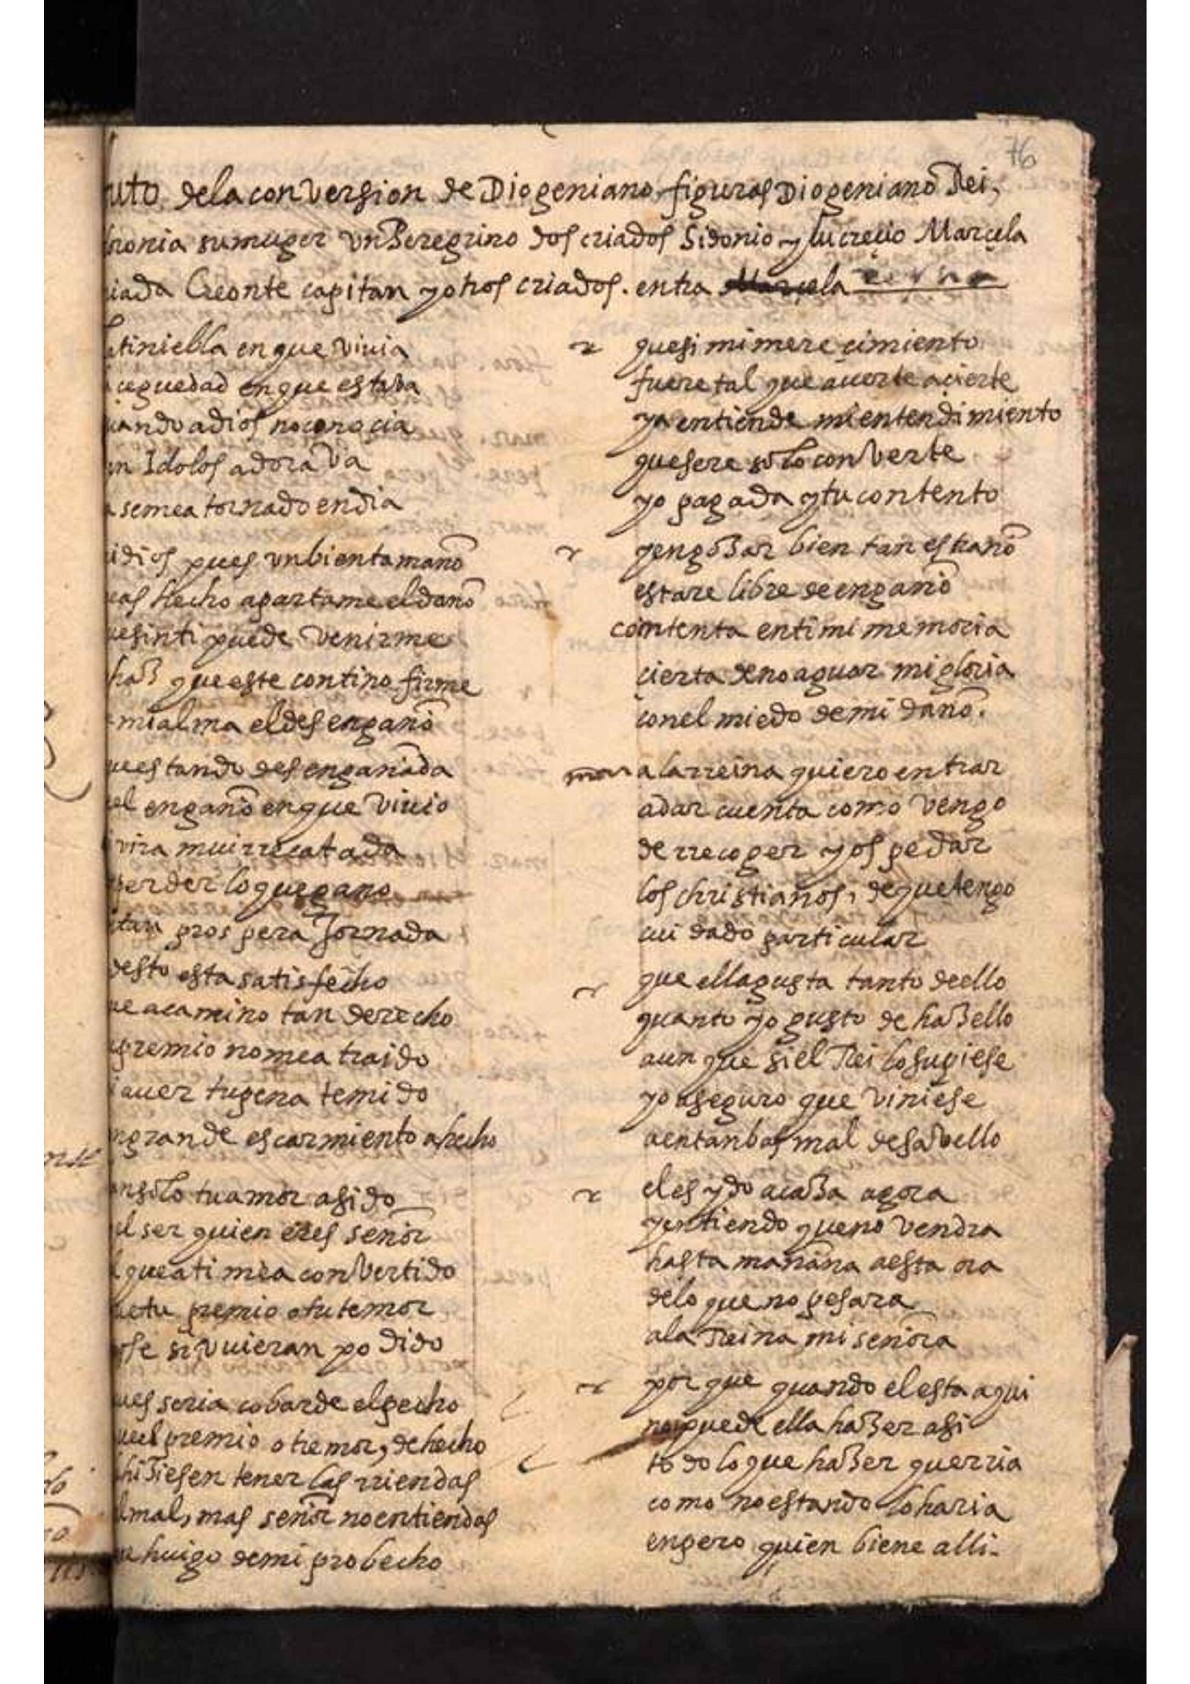 76
uto dela conversion de Diogeniano, figuras Diogeniano Rei,
fronia su muger vn Peregrino dos criados Sidonio y lucreçio Marçela
iada Creonte capitan y otros criados. entra
tiniebla en que vivia
ceguedad en que estava
uando a dios no conocia
en Idolos adorava
a se mea tornado en dia
i dios pues vn bien tamaño
eas hecho apartame el daño
ue sin ti puede venirme
haz que este contino firme
e mi alma el desengaño
ue estando desengañada
el engaño en que vivio
vira mui rrecatada
perder lo que gano
tan prospera Jornada
desto esta satisfecho
ue a camino tan derecho
u premio no mea traido
i aver tu pena temido
n grande escarmiento a hecho
an solo tu amor a sido
el ser quien eres señor
l que a ti mea convertido
ue tu premio o tu temor
ose si vuieran podido
ues seria cobarde el pecho
ue el premio o temor, de hecho
hiziesen tener las rriendas
l mal, mas señor no entiendas
ue huigo de mi probecho
que si mi mere cimiento
fuere tal que a verte acierte
ya entiende mi entendimiento
que sere solo con verte
yo pagada y tu contento
y en gozar bien tan estraño
estare libre de engaño
contenta en ti mi memoria
cierta de no aguar mi gloria
con el miedo de mi daño.
mar a la rreina quiero entrar
a dar cuenta como vengo
de rrecoger y ospedar
los christianos, de que tengo
cuidado particular
que ella gusta tanto de ello
quanto yo gusto de hazello
aun que si el Rei lo supiese
yo aseguro que viniese
a entanbas mal de sabello
el es ydo a caza agora
y entiendo que no vendra
hasta mañana a esta ora
de lo que no pesara
a la Reina mi señora
por que quando el esta aqui
no puede ella hazer asi
todo lo que hazer querria
como no estando lo haria
enpero quien biene alli.